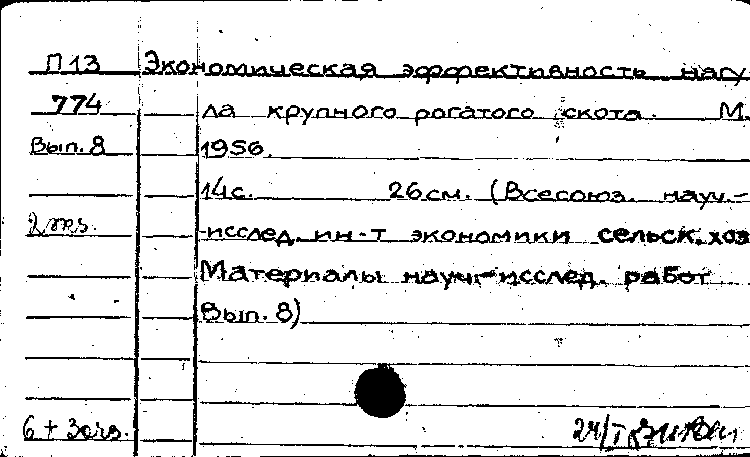 П13 Экономическая эффективность нагу
774 ла крупного рогатого скота. М.
Вып. 8 1956.
14с. 26см. (Всесоюз. науч.-
2 экз. -исслед. ин-т экономики сельск. хоз
Материалы науч.-исслед. работ
Вып. 8)
6 + 3 24/I